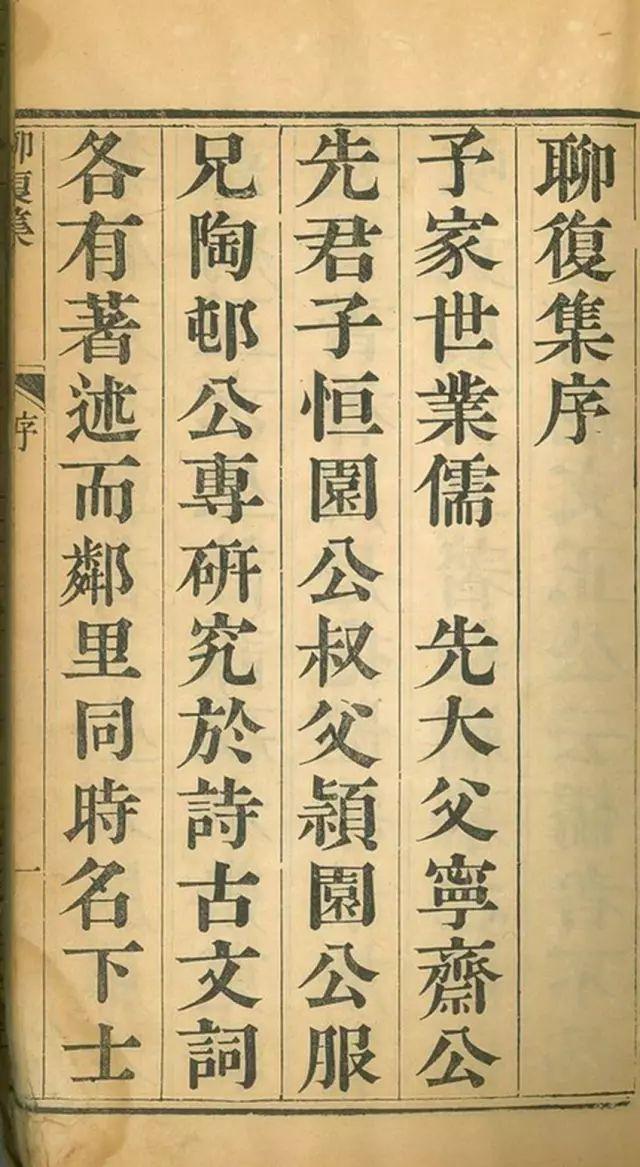 聊復集序
予家世業儒　先大父寧齋公
先君子恒園公叔父潁園公服
兄陶邨公專研究於詩古文詞
各有著述而鄰里同時名下士
聊復集
序
一